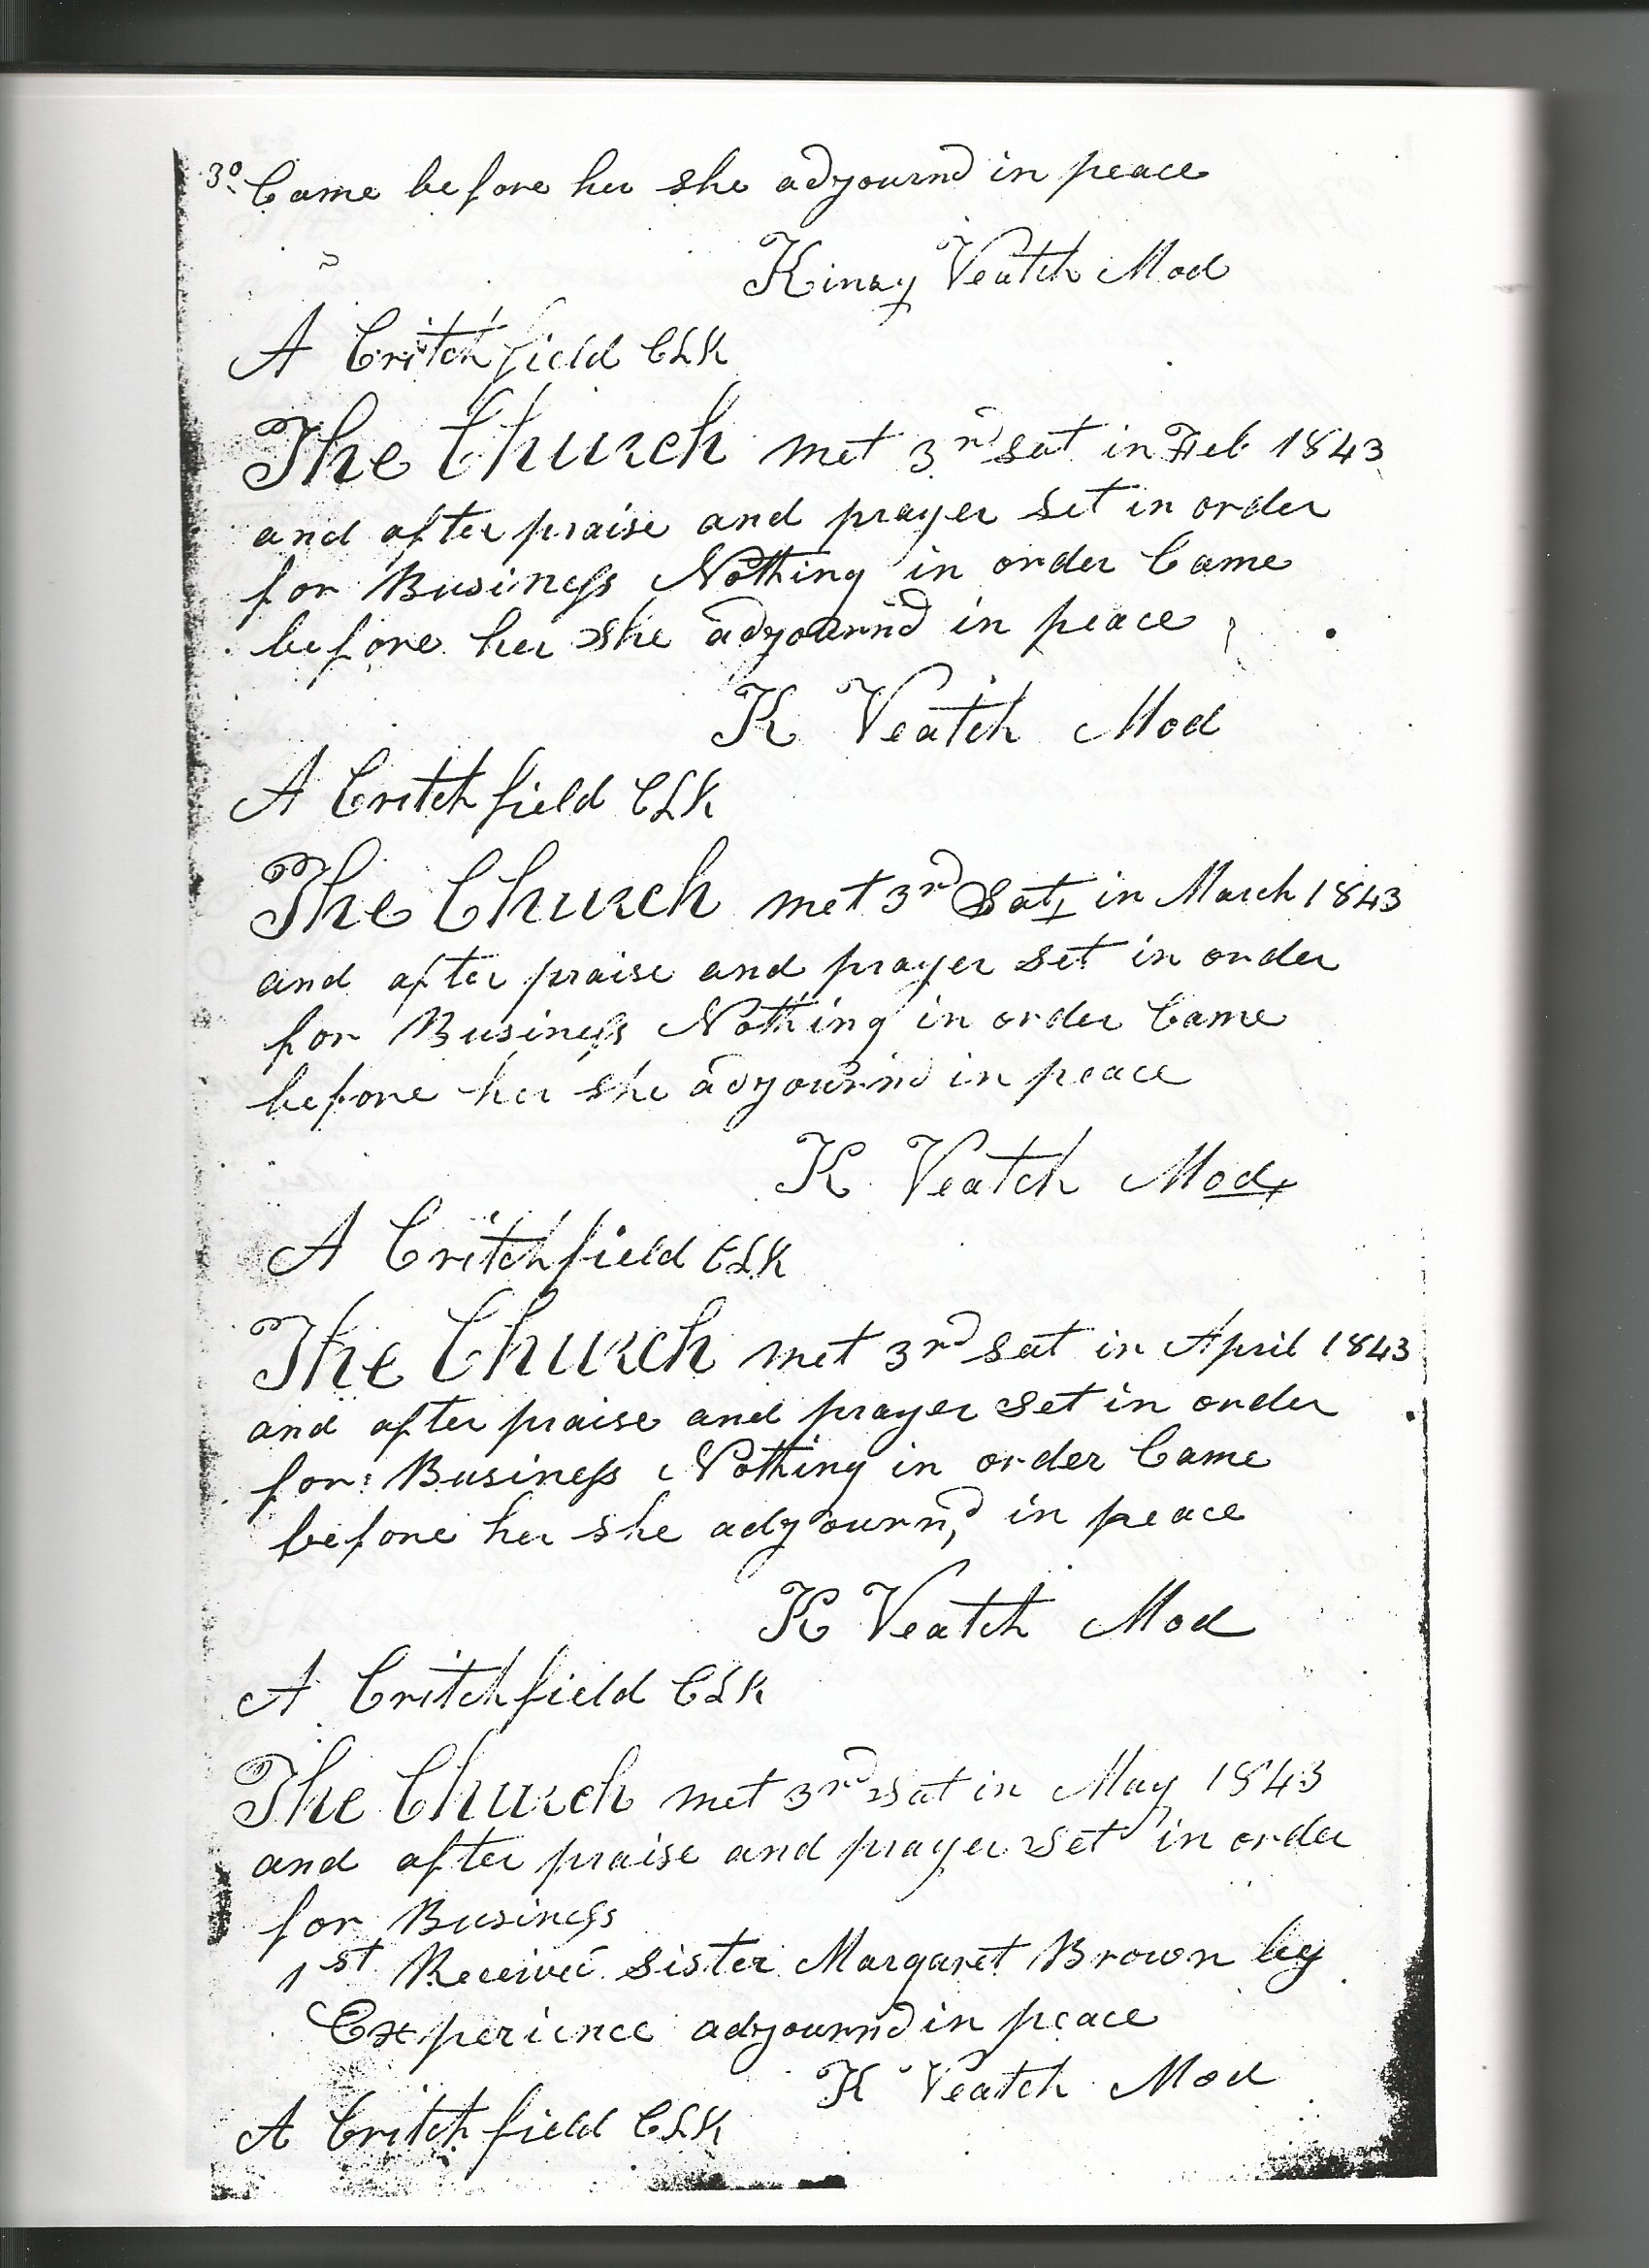 30. Came before her she adyournd in peace
Kinzy Veatch Mod
A Critchfield CLK
The Church met 3rd sat in Feb 1843
and after praise and prayer set in order
for Business Nothing in order Came
before her she adyournd in peace
K Veatch Mod
A Critchfield CLK
The Church met 3rd Sat in March 1843
and after praise and prayer set in order
for Business Nothing in order Came
before her she adyournd in peace
K Veatch Mod
A Critchfield CLK
The Church met 3rd sat in April 1843
and after praise and prayer set in order
for Business Nothing in order Came
before her she adyournd in peace
K Veatch Mod
A Critchfield CLK
The Church met 3rd sat in May 1843
and after praise and prayer set in order
for Business
1st Receivd sister Margaret Brown by
Experience adyournd in peace
K Veatch Mod
A Critchfield CLK